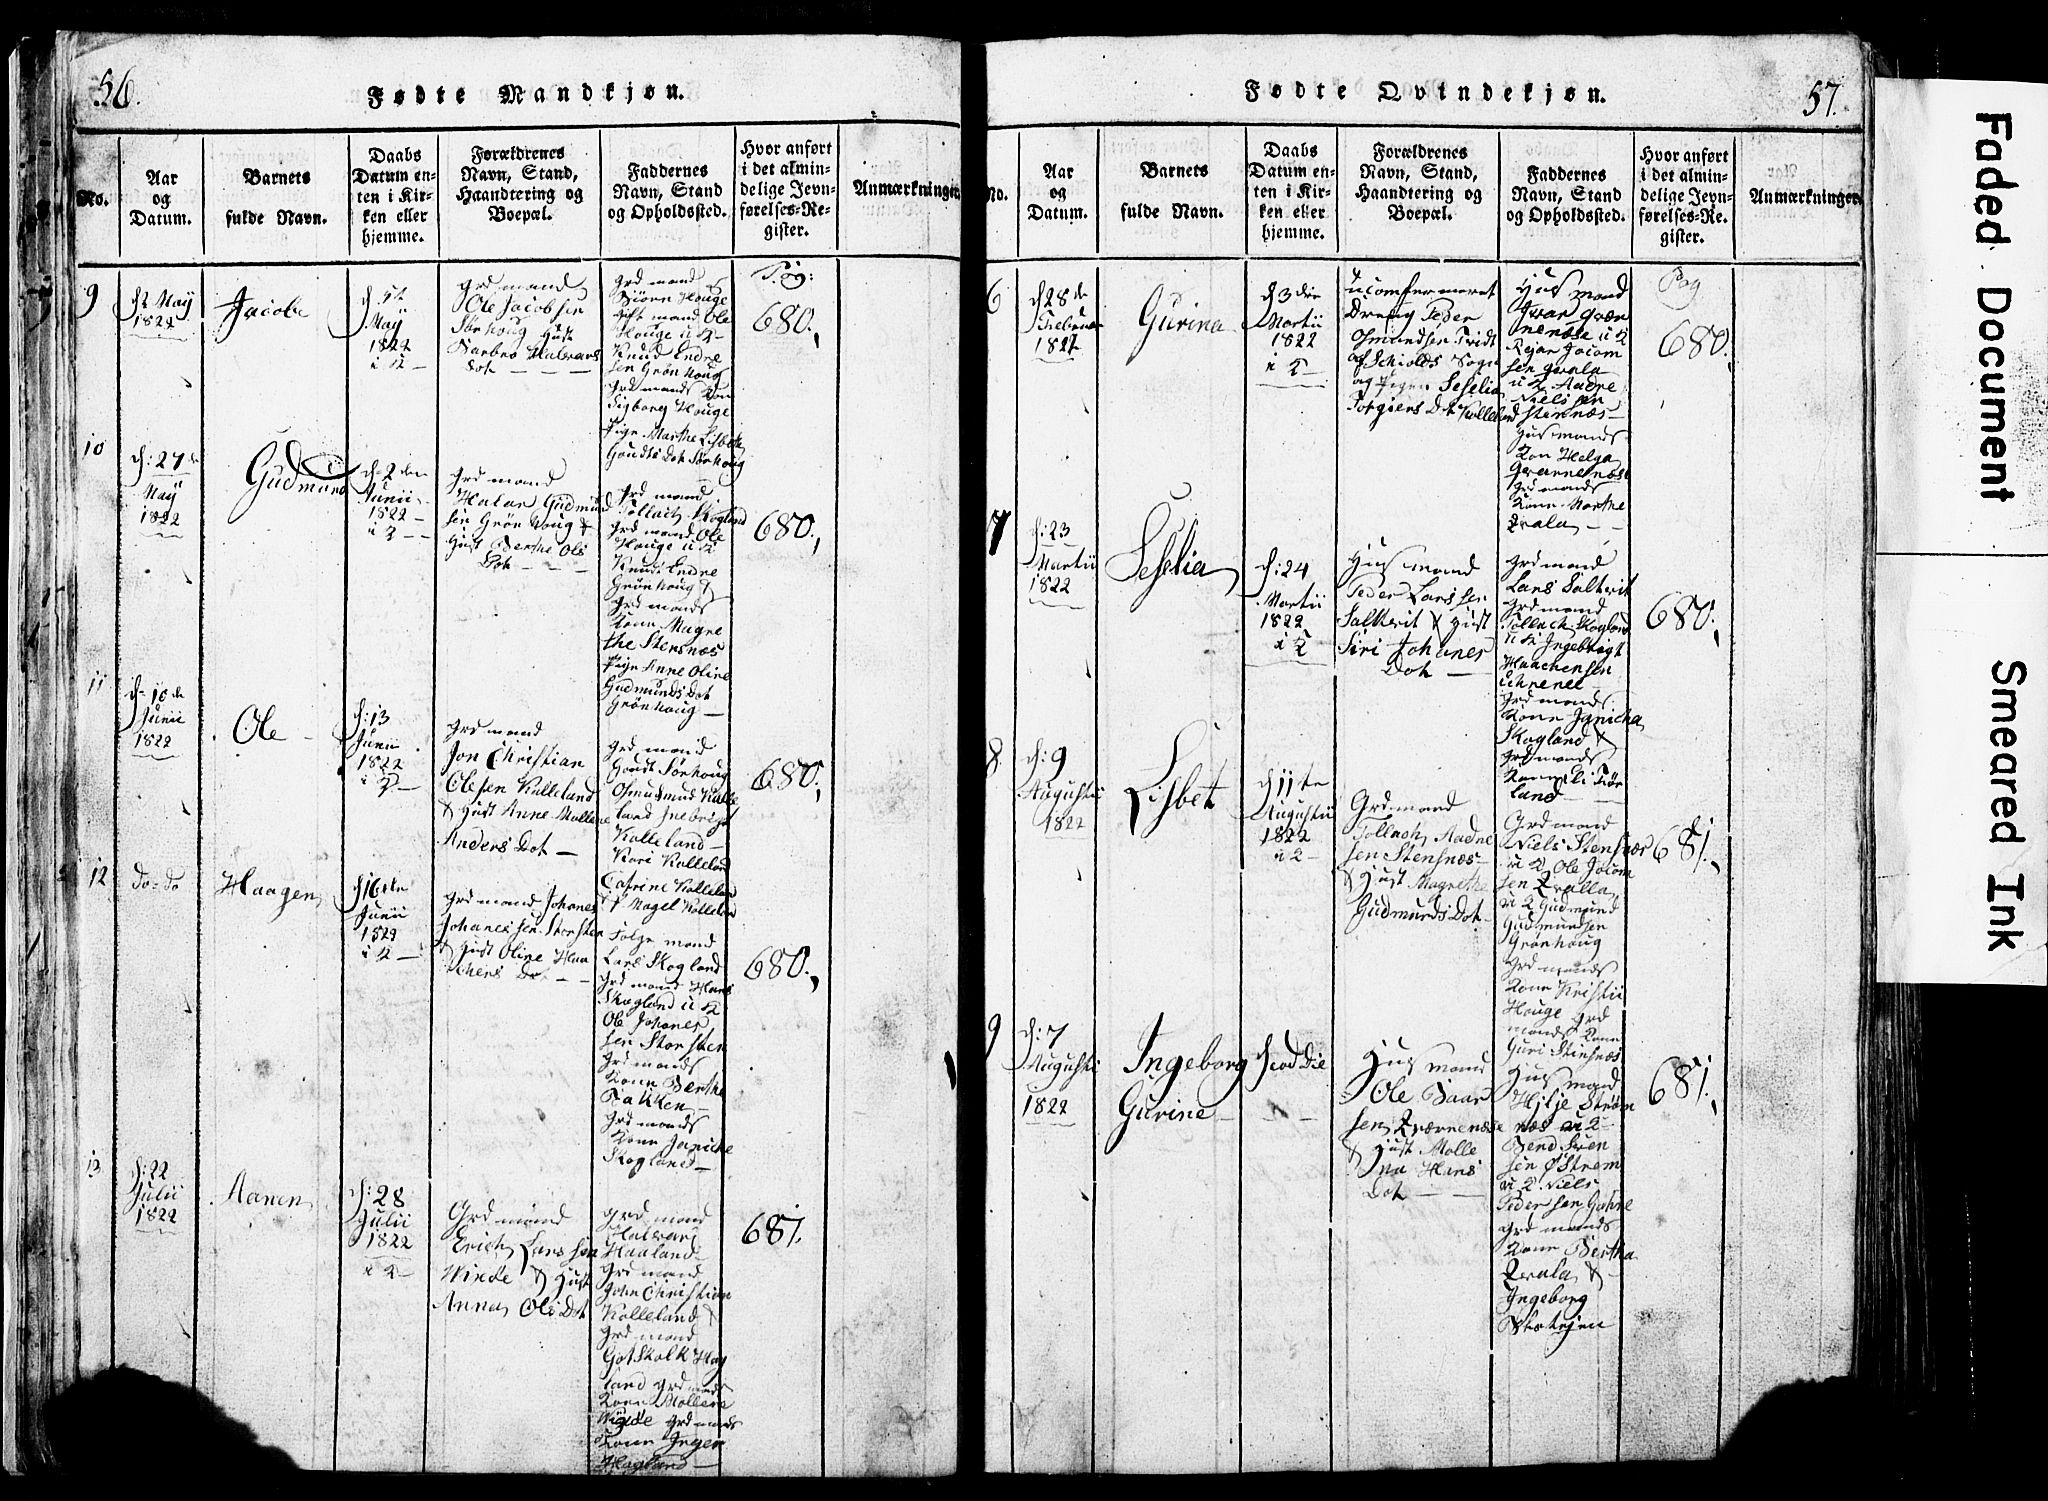 56.
Fødte Mandkjøn.
No.
Aar
og
Datum.
Barnets
fulde Navn.
Daabs
Datum en-
ten i Kir-
ken eller
hjemme.
Forældrenes
Navn, Stand,
Haandtering og
Boepæl.
Faddernes
Navn, Stand
og Opholdssted.
Hvor anført
i det almin-
delige Jevn-
førelses-Re-
gister.
Anmærkninger.
9
May
1822
Jacob
May
1822
grd mand
Ole Jacobsen
Sørhoug
Barbro Halvars
Dot
grd mand
Biørn Houge
gift mand Ole
Houge
Knud Endre
sen Grønhoug
grd mands Kon
Sigborg Houge
Pige Marthe Lisbeth
Goudts Dot Sørhoug
Pag:
680.
10
d: 27
May
1822
Gudmund
d: 2 den
Junii
1822
grd mand
Halvar Gudmund
sen Grønhoug &
Hust Berthe Ols
Dot
grd mand
Tollach Skogland
grd mand Ole
Houge
Knud Endre
Grønhoug &
grd mands
Kone Magre
the Stensnæs
Pige Anne Oline
Gudmunds Dot
Grønhoug
680.
11
d: 10 de
Junii
1822
Ole
d: 13
Junii
1822
grd mand
Jon Christian
Olesen Kalleland
& Hust Anne Malle
Anders Dot
grd mand
Goudt Sørhoug
Osmund Kalle
land
Kalleland
Kari Kalleland
Catrine Kalleland
& Magel Kalleland
680.
12
do - do
Haagen
d: 16 ten
Junii
1822
grd mand Johanes
Johanessen Storsten
& Hust Oline Haa
chens Dot
Følge mand
Lars Skogland
grd mand Hans
Skogland
Ole Johanes
sen Storsten
grd mands
Kone Berthe
Bakken
grd mands
Kone Janiche
Skogland
680.
13
d: 22
Julii
1822
Aanen
d: 28
Julii
1822
Grd mand
Erich Larssen
Winde & Hust
Anna Ols Dot
grd mand
Halvar
Haaland
Grd mand
John Christian
Kalleland &
Grd mand
Gotskalk Hag
land grd mands
Kone Mollene
Winde grd mands
Kone Inger
Hagland
681.
57.
Fødte Qvindekjøn.
No.
Aar
og
Datum.
Barnets
fulde Navn.
Daabs
Datum en-
ten i Kir-
ken eller
hjemme.
Forældrenes
Navn, Stand,
Haandtering og
Boepæl.
Faddernes
Navn, Stand
og Opholdssted.
Hvor anført
i det almin-
delige Jevn-
førelses-Re-
gister.
Anmærkninger.
6
d 28 de
Febr
1822
Gurina
d 3 die
Martii
1822
ucomfermeret
Dreng Peder
Osmundsen Tvidt
af Schiolds Sogn
og Pigen Seselia
Torgiers Dot Kalleland
Husmand
Ivar Qvær
nenæse
Rejar Jocom
sen Qvala
Aadne
Nielssen
Stensnæs
Husmands
Kon Helga
Qværnenæse
grd mands
Kone Marthe
Qvala
Pag
680.
7
d: 23
Martii
1822
Seselia
d: 24
Martii
1822
Husmand
Peder Larssen
Saltvit & Hust
Siri Johanes
Dot
grd mand
Lars Saltvit
grd mand
Tollach Skogland
Ingebrigt
Haachensen
grd mands
Kone Janicha
Skogland &
grd mands
Kone
land
680.
8.
d: 9
Augusti
1822
Lisbet
d 11 te
Augustii
1822
Grd mand
Tollach Aadne
sen Stensnæs
& Hust Magrethe
Gudmunds Dot
Grd mand
Niels Stensnæs
Ole Jocom
sen Qvalla
Gudmund
Gudmundsen
Grønhoug
Grd mands
Kone Kristii
Houge grd
mands Kone
Guri Stensnæs
681.
9
d: 7
Augusti
1822
Ingeborg
Gurine
Husmand
Ole Baar
sen Qværnenæse
& Hust Malle
na Hans
Dot
Husmand
Hilje Strøm
næs
Bend Sven
sen Østrem
Niels
Pedersen
grd mands
Kone Bertha
Qvala &
Ingeborg
681.
Faded Document
Smeared Ink